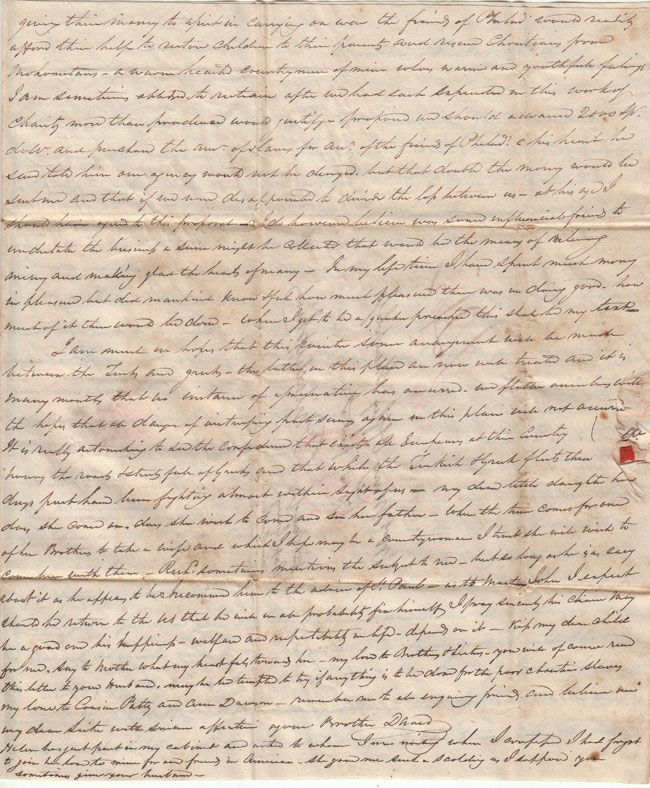 giving their money to assist in carrying on war the friends of Philad. would readily
afford their help to restore Children to their parents and rescue Christians from
Mahomotans - a warm hearted countryman of mine whose warm and youthful feelings
I am sometimes obliged to restrain after we had each expended in this work of
Charity more than prudence would justify - proposed we should advance 2000
and purchase the of slaves for of the friends of Philad. & his heart he
said told him our agency would not be denyed. but that double the money would be
sent me and that if we were disappointed to divide the loss between us - at his age I
should have agreed to this proposal - I do however believe was some influencial friend to
undertake the business a sum might be collected that would be the means of relieving
misery and making glad the hearts of many - In my life time I have spent much money
in pleasure but did mankind know half how much pleasure there was in doing good - how
much of it there would be done - when I get to be a quaker preacher this shall be my text -
I am much in hopes that this winter some arrangement will be made
between the Turks and greeks - the latter in this place are now well treated and it is
many months that no instance of has occurred. we flatter ourselves with
the hopes that all danger of past scenes again in this place will not occur
It is really astonishing to see the Confidence that exists all Europeans at this Country
the roads & streets full of Greeks and that while the Turkish & Greek fleets these
days past have been fighting almost within sight of us - my dear little daughter how
does she come on, does she wish to come and see her father - when the time comes for one
of her Brothers to take a wife and which I hope may be a countrywoman I think she will wish to
come here with them - Rich. sometimes mentions the subject to me - but so long as he is as easy
about it as he appears to be I recommend him to the advice of St Paul - as to Master John I expect
should he return to the US that he will in all probability fix himself, I pray sincerely his Choice may
be a good one his happiness - welfare and respectability in life - depend on it - Kiss my dear child
for me, say to Mother what my heart feels toward her - my love to Brother - you will of course read
this letter to your Husband, may he be tempted to try if any thing is to be done for the poor christian slaves
my love to Cousin Patty and Ann Dawson - remember me to all enquiring friends and believe me
my dear Sister with sincere affection your Brother David
Helen has just past in my cabinet and asked to whom I was writing when I I had forgot
to join her love to mine for and friends in America - she gave me such a scolding as I suppose you
sometimes give your husband -